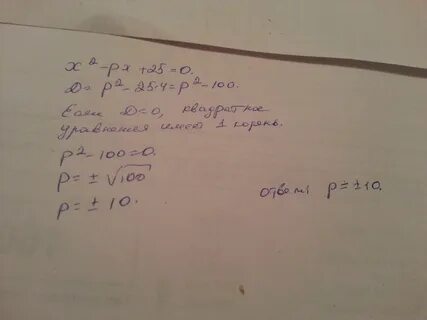 x² - px + 25 = 0.
D = p² - 25·4 = p² - 100.
Если D=0, квадратное
уравнения имеет 1 корень.
p² - 100 = 0.
p = ± √100
p = ± 10.
ответ: p = ± 10.